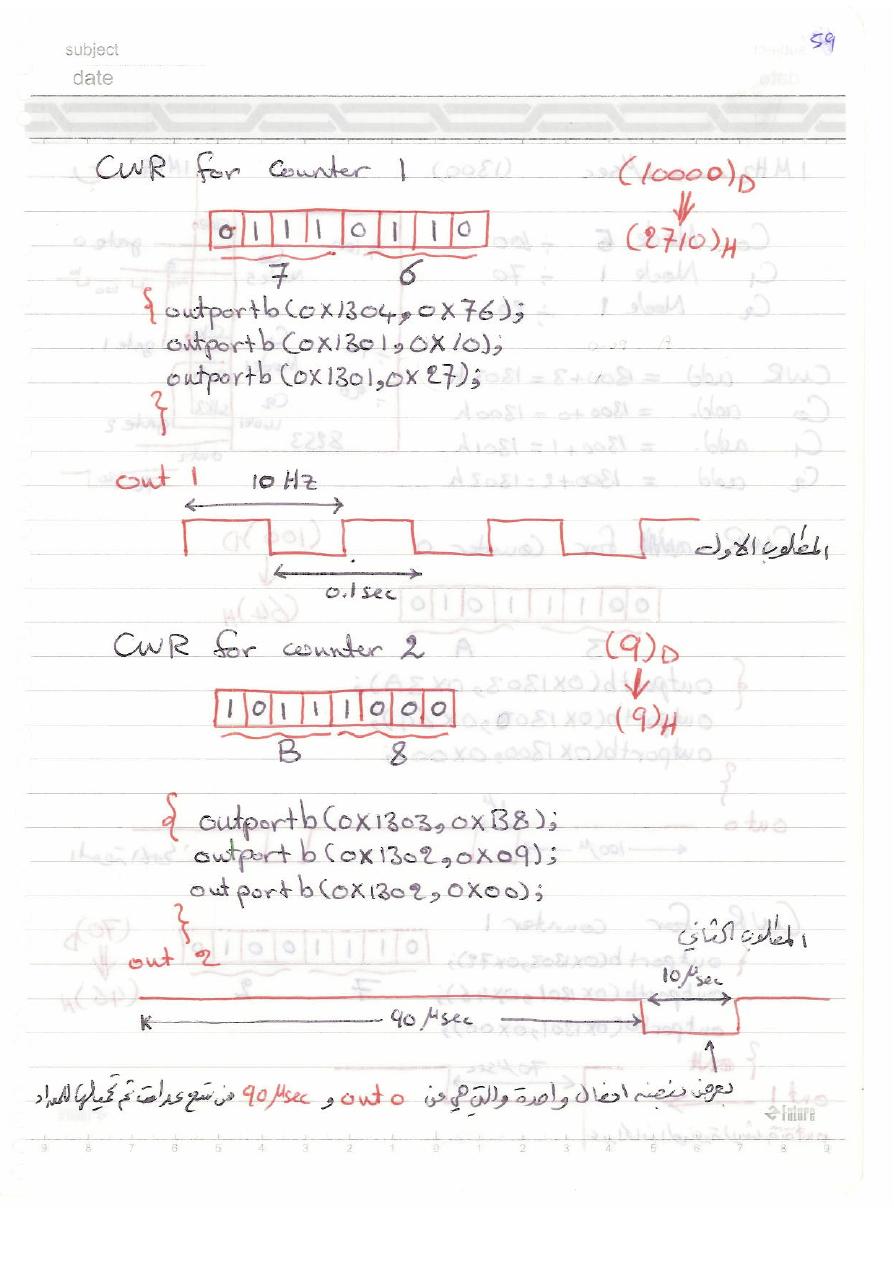 59
subject
date
CWR for counter 1
(10000)D
0 1 1 1 0 1 1 0
(2710)H
7 6
{ outportb(0X1304,0X76);
outportb(0X1301,0X10);
outportb(0X1301,0X27);
}
out 1
10 Hz
المطلوب الاول
0.1 sec
CWR for counter 2
(9)D
1 0 1 1 1 0 0 0
(9)H
B 8
{ outportb(0X1303,0XB8);
outportb(0X1302,0X09);
outportb(0X1302,0X00);
}
المطلوب الثاني
out 2
10 μsec
90 μsec
بعرض نبضة واحدة والتي هي من out 0 و 90 μsec من تسع عدات تم تحميلها للعداد
Future
9 8 7 6 5 4 3 2 1 0 1 2 3 4 5 6 7 8 9